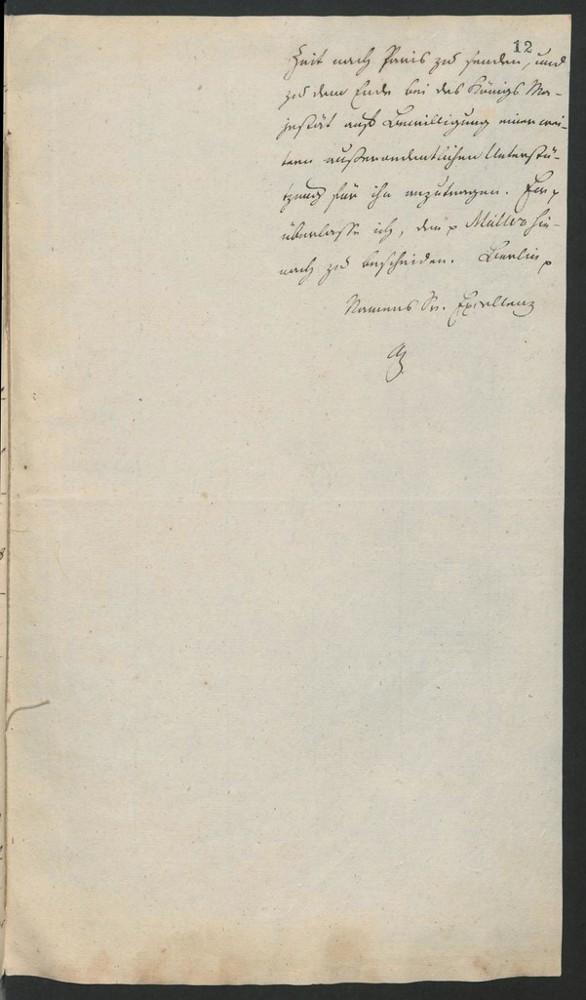 12
Zeit nach Paris zu senden, und
zu dem Ende bei des Königs Ma-
jestät auf Bewilligung einer wei-
tern außerordentlichen Unterstü-
tzung für ihn anzutragen. Ew. p
überlasse ich, den p Müller hie-
nach zu bescheiden. Berlin p
Namens Sr. Excellenz